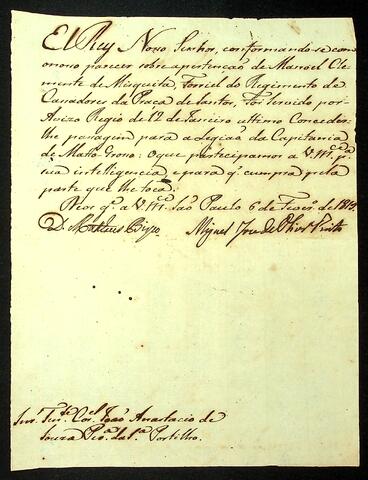 El Rey Nosso Senhor, conformando-se com o
nosso parecer sobre a pertenção de Manoel Cle
mente de Misquita, Forriel do Regimento de
Casadores da Praça de Santos, Foi servido por
Avizo Regio de 12 de Janeiro ultimo Conceder
lhe passagem para a Legião da Capitania
de Matto Grosso: o que participamos a V. M.ce p.a
sua inteligencia, e para q. cumpra pela
parte que lhe toca.
Deos g.e a V. M.ce São Paulo 6 de Fever.o de
D. Matheus Bispo Miguel Joze de Oliv.ra Pinto
Snr. Ten.te Cor.el João Anastacio de
Souza Portilho.